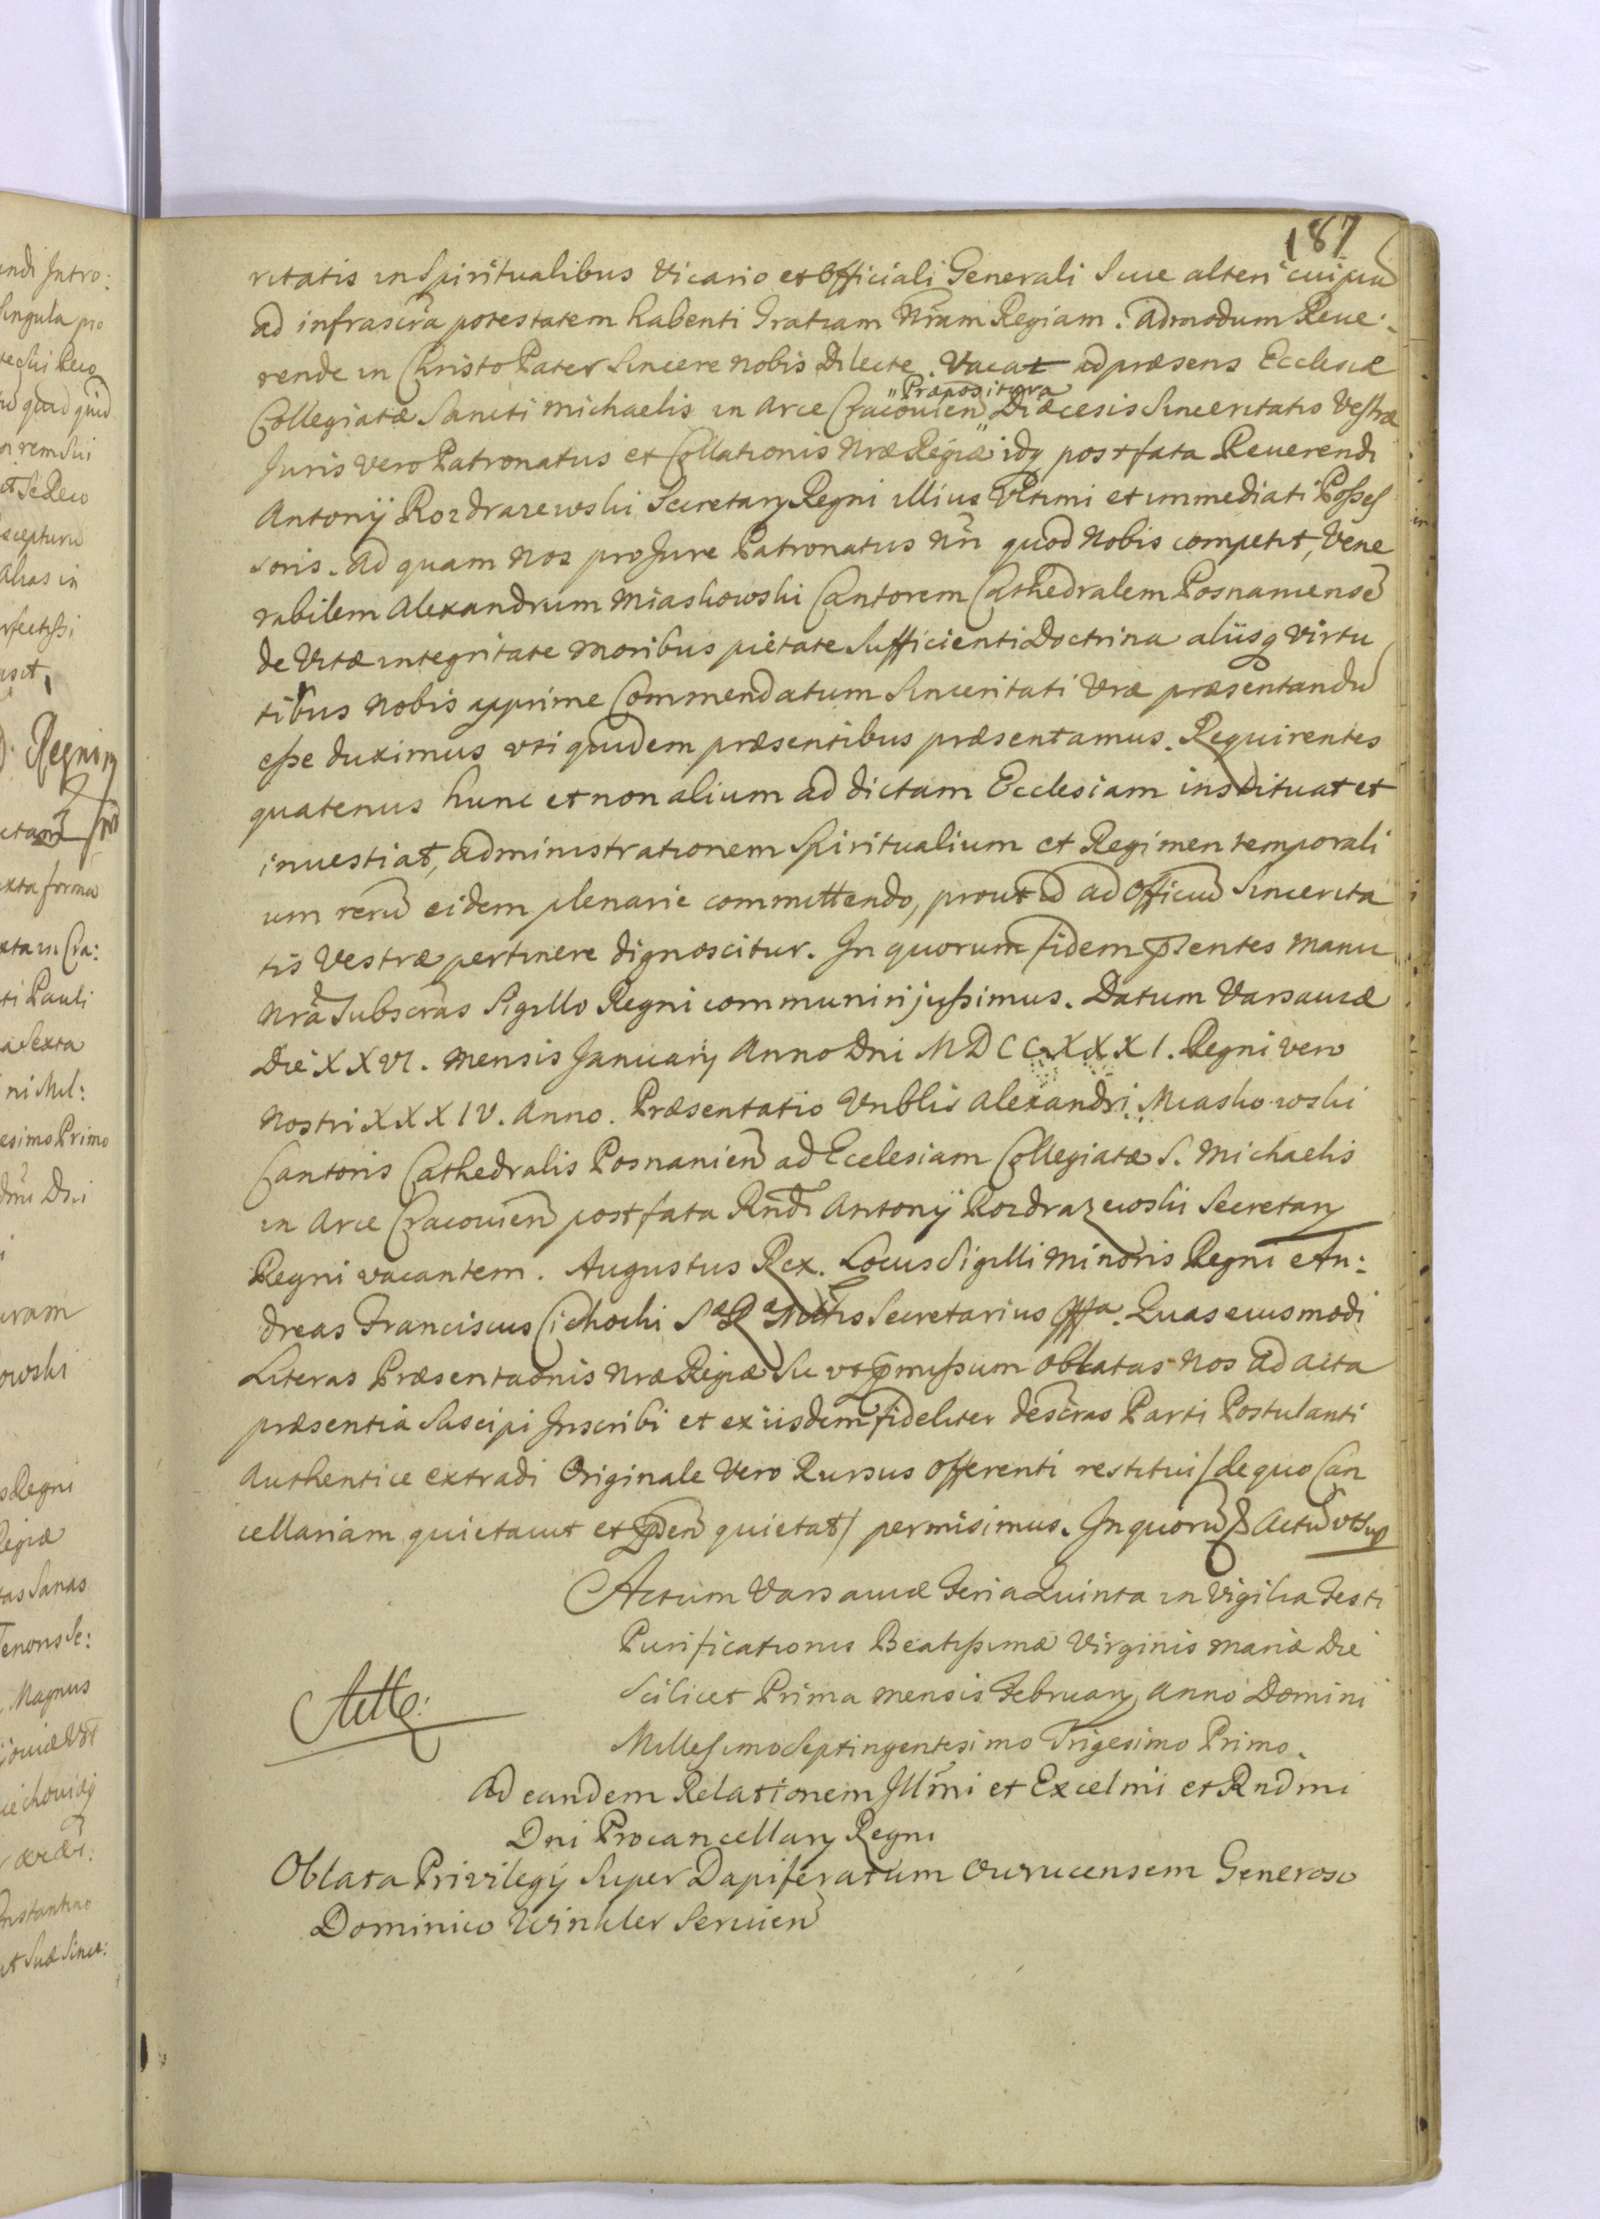 187
ritatis in Spiritualibus Vicario et Officiali Generali Sive alteri cuipiã
ad infrascrã potestatem habenti Gratiam Nram Regiam. Admodum Reve:
rende in Christo Pater Sincere nobis Dilecte. Vacat ad præsens Ecclesiæ
"Præpositura
Collegiatæ Sancti Michaelis in Arce Cracovien" Diæcesis Sinceritatis Vestræ
Juris vero Patronatus et Collationis Nræ Regiæ idq post fata Reverendi
Antonÿ Rozdrazewski Secretarÿ Regni illius Vltimi et immediati Possess
soris. Ad quam nos pro Jure Patronatus Nri quod Nobis competit, Vene
rabilem Alexandrum Miaskowski Cantorem Cathedralem Posnaniensẽ
de Vitæ integritate moribus pietate Sufficienti Doctrina alÿsq Virtu
tibus nobis apprime Commendatum Sinceritati Vræ præsentandũ
esse duximus uti quidem præsentibus præsentamus. Requirentes
quatenus hunc et non alium ad dictam Ecclesiam instituat et
investiat, administrationem Spiritualium et Regimen temporali
um rerũ eidem plenarie committendo, prout id ad Officiũ Sincerita
tis Vestræ pertinere dignoscitur. In quorum fidem pñsentes manu
Nrã Subscras Sigillo Regni communiri jussimus. Datum Varsaviæ
Die XXVI. mensis Januarÿ Anno Dni MDCCXXXI. Regni vero
Nostri XXXIV. Anno. Præsentatio Vnblis Alexandri Miaskowski
Cantoris Cathedralis Posnanien ad Ecclesiam Collegiatæ S. Michaelis
in Arce Cracovien post fata Rndi Antonÿ Rozdrazewski Secretarÿ
Regni vacantem. Augustus Rex. Locus Sigilli minoris Regni An:
dreas Franciscus Cichocki Sæ Ræ Mttis Secretarius mppa. Quas eiusmodi
Literas Præsentaõnis Nræ Regiæ Sic ut pmissum oblatas nos ad acta
præsentia Suscipi Inscribi et ex iisdem fideliter descrãs Parti Postulanti
Authentice extradi Originale Vero Rursus Offerenti restitui /de quo Can
cellariam quietavit et pñsen quietat/ permisimus. In quorũ & Actũ ut sup
Actum Varsaviæ Feria Quinta in Vigilia Festi
Purificationis Beatissimæ Virginis Mariæ Die
Scilicet Prima mensis Februarÿ Anno Domini
Millesimo Septingentesimo Trigesimo Primo.
Ad eandem Relationem Illmi et Excelmi et Rndmi
Dni Procancellarÿ Regni
Oblata Privilegÿ Super Dapiferatum Owrucensem Generoso
Dominico Winkler Servien